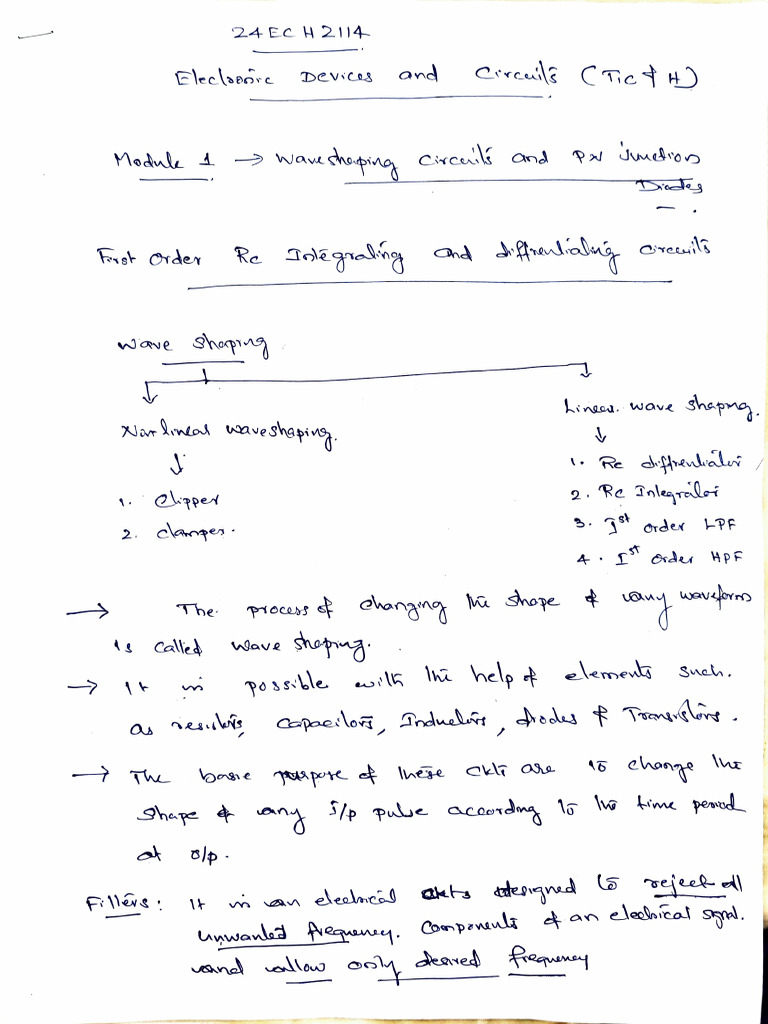 24ECH2114
Electronic Devices and Circuits (TIC & H)
Module 1 → Waveshaping circuits and PN junction
Diodes
First Order RC Integrating and diffrentiating circuits
Wave Shaping
Linear wave shaping.
Non lineal waveshaping.
1. RC diffrentiator
1. Clipper
2. RC Integrator
2. Clamper.
3. Ist order LPF
4. Ist order HPF
→ The process of changing the shape of any waveform
is called wave shaping.
→ It is possible with the help of elements such.
as resistors, capacitors, Inductors, diodes & Transistors.
→ The basic purpose of these ckts are to change the
shape of any I/p pulse according to the time period
at o/p.
Filters: It is an electrical ckts designed to reject all
unwanted frequency. components of an electrical signal.
and allow only desired frequency